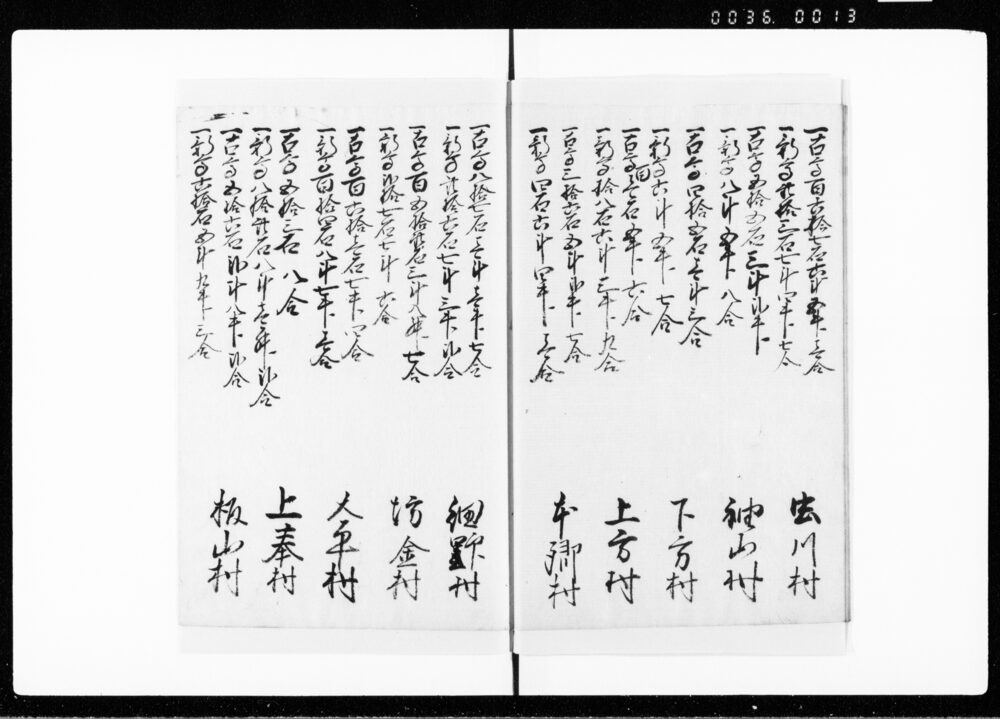 0036. 0013
一古高百六拾七石六斗五升壱合
一新高弐拾三石七斗四升七合
虫川村
一古高五拾五石三斗弐升
一新高八斗五升八合
袖山村
一古高四拾五石壱斗三合
一新高六斗五升七合
下方村
一古高百壱石五升六合
一新高拾八石六斗三升九合
上方村
一古高三拾六石五斗弐升七合
一新高四石六斗四升壱合
本郷村
一古高八拾七石壱斗壱升七合
一新高弐拾六石七斗三升弐合
細野村
一古高百五拾弐石三斗八升七合
一新高弐拾七石七斗六合
坊金村
一古高百六拾壱石七升四合
一新高百拾四石八斗七升壱合
大平村
一古高五拾三石八合
一新高八拾弐石八斗壱升弐合
上達村
一古高五拾六石弐斗八升弐合
一新高六拾石五斗九升三合
板山村